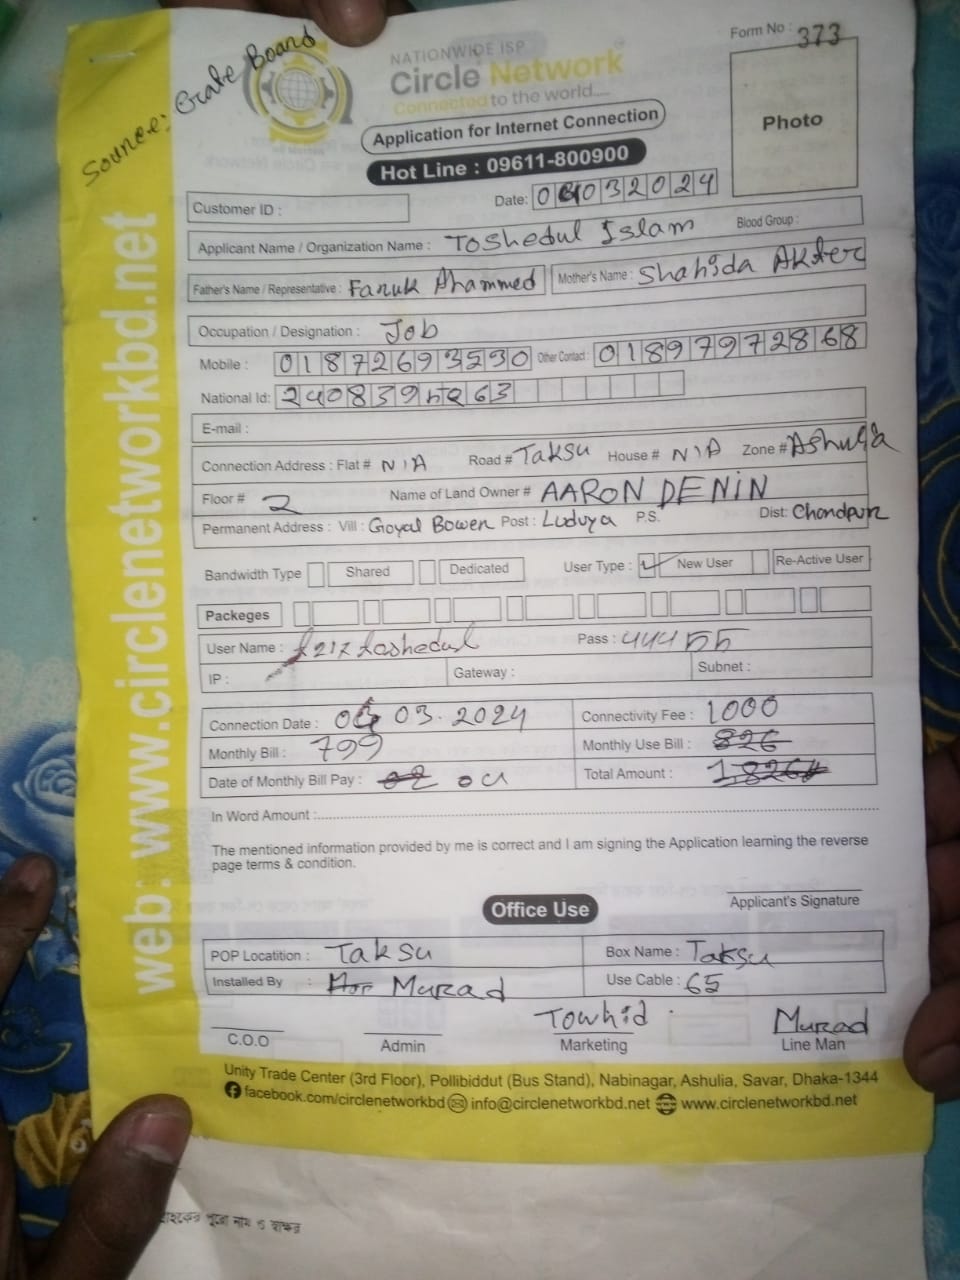 Form No : 373
Source: Grate Board
NATIONWIDE ISP
Circle Network
Connected to the world....
Photo
Application for Internet Connection
Hot Line : 09611-800900
Date: 032024
Customer ID :
Applicant Name / Organization Name : Toshedul Islam Blood Group :
Father's Name / Representative : Faruk Ahammed Mother's Name : Shahida Akter
Occupation / Designation : Job
Mobile : 01872693530 Other Contact : 01897972868
National Id:
E-mail :
Connection Address : Flat # N/A Road # Taksu House # N/A Zone #
Floor # 2 Name of Land Owner # AARON DENIN
Permanent Address : Vill : Goyal Bowen Post : Luduya P.S. Dist: Chandpur
Bandwidth Type Shared Dedicated User Type : New User Re-Active User
Packeges
User Name : Pass : 44455
IP : Gateway : Subnet :
Connection Date : 03.2024 Connectivity Fee : 1000
Monthly Bill : 799 Monthly Use Bill : 826
Date of Monthly Bill Pay : Total Amount :
In Word Amount :
The mentioned information provided by me is correct and I am signing the Application learning the reverse
page terms & condition.
Applicant's Signature
Office Use
POP Locatition : Taksu Box Name : Taksu
Installed By : Murad Use Cable : 65
Towhid Murad
C.O.O Admin Marketing Line Man
Unity Trade Center (3rd Floor), Pollibiddut (Bus Stand), Nabinagar, Ashulia, Savar, Dhaka-1344
facebook.com/circlenetworkbd info@circlenetworkbd.net www.circlenetworkbd.net
web: www.circlenetworkbd.net
গ্রাহকের পুরো নাম ও স্বাক্ষর